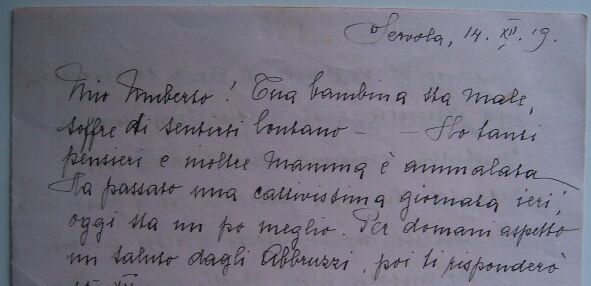 Servola, 14. XII. 19.
Mio Umberto! Tua bambina sta male,
soffre di sentirti lontano – – Ho tanti
pensieri e inoltre Mamma è ammalata
Ha passato una cattivissima giornata ieri,
oggi sta un po meglio. Per domani aspetto
un saluto dagli Abbruzzi, poi ti risponderò